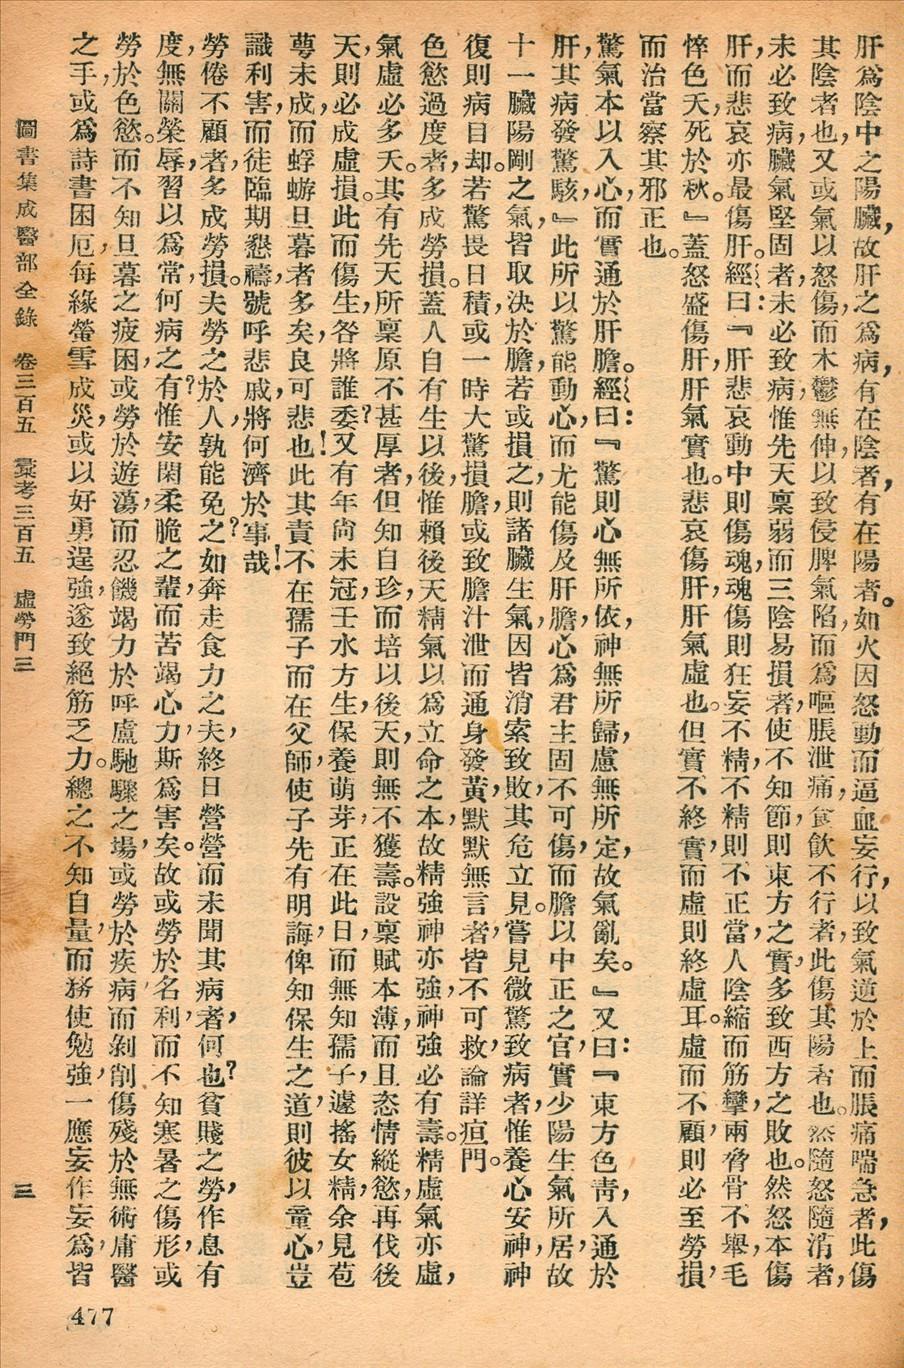 肝爲陰中之陽臟，故肝之爲病，有在陰者，有在陽者。如火因怒動而逼血妄行，以致氣逆於上而脹痛喘急者，此傷
其陰者也，又或氣以怒傷，而木鬱無伸，以致侵脾氣陷，而爲嘔脹泄痛，食飲不行者，此傷其陽者也。然隨怒隨消者，
未必致病，臟氣堅固者，未必致病，惟先天稟弱而三陰易損者，使不知節，則東方之實，多致西方之敗也。然怒本傷
肝，而悲哀亦最傷肝。經曰：『肝悲哀動中則傷魂，魂傷則狂妄不精，不精則不正當，人陰縮而筋攣，兩脅骨不舉，毛
悴色夭，死於秋。』蓋怒盛傷肝，肝氣實也。悲哀傷肝，肝氣虛也。但實不終實，而虛則終虛耳。虛而不顧，則必至勞損，
而治當察其邪正也。
驚氣本以入心，而實通於肝膽。經曰：『驚則心無所依，神無所歸，慮無所定，故氣亂矣。』又曰：『東方色靑，入通於
肝，其病發驚駭，』此所以驚能動心，而尤能傷及肝膽，心爲君主，固不可傷，而膽以中正之官，實少陽生氣所居，故
十一臟陽剛之氣，皆取決於膽，若或損之，則諸臟生氣，因皆消索致敗，其危立見。嘗見微驚致病者，惟養心安神，神
復則病自却。若驚畏日積，或一時大驚損膽，或致膽汁泄而通身發黃，默默無言者，皆不可救，論詳疸門。
色慾過度者，多成勞損。蓋人自有生以後，惟賴後天精氣以爲立命之本，故精強神亦強，神強必有壽。精虛氣亦虛，
氣虛必多夭。其有先天所稟原不甚厚者，但知自珍，而培以後天，則無不獲壽。設稟賦本薄，而且恣情縱慾，再伐後
天，則必成虛損。此而傷生，咎將誰委？又有年尚未冠，壬水方生，保養萌芽，正在此日，而無知孺子，遽搖女精，余見苞
萼未成，而蜉蝣旦暮者多矣，良可悲也！此其責不在孺子而在父師，使子先有明誨，俾知保生之道，則彼以童心，豈
識利害，而徒臨期懇禱，號呼悲戚，將何濟於事哉！
勞倦不顧者，多成勞損。夫勞之於人，孰能免之？如奔走食力之夫，終日營營，而未聞其病者，何也？貧賤之勞，作息有
度，無關榮辱，習以爲常，何病之有？惟安閑柔脆之輩，而苦竭心力，斯爲害矣。故或勞於名利，而不知寒暑之傷形，或
勞於色慾。而不知旦暮之疲困，或勞於遊蕩，而忍饑竭力於呼盧馳驟之場，或勞於疾病，而剝削傷殘於無術庸醫
之手，或爲詩書困厄，每緣螢雪成災，或以好勇逞強，遂致絕筋乏力。總之不知自量，而務使勉強，一應妄作妄爲，皆
圖書集成醫部全錄　卷三百五　彙考三百五　虛勞門三
三
477